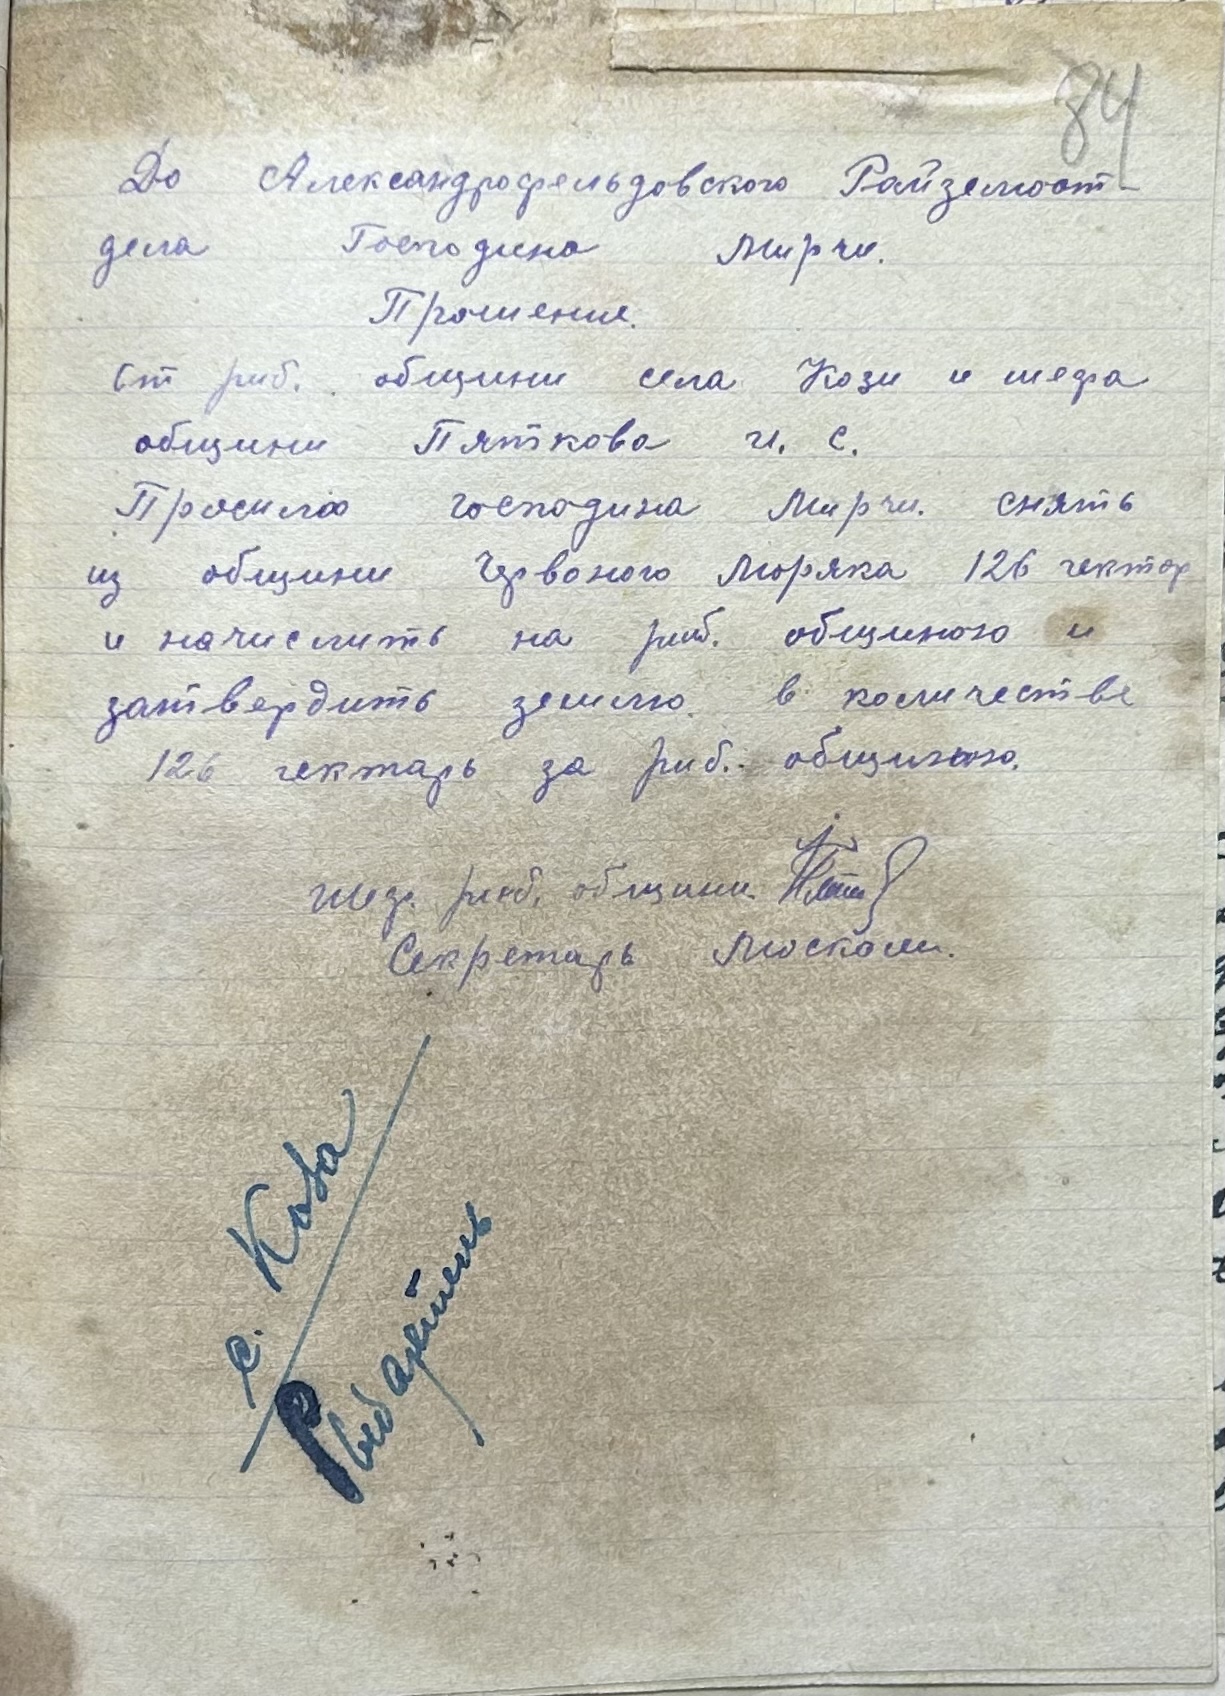 84
До Александрофельдовского Райземот
дела Господина Мирчи.
Прошение.
От риб. общини села Кози и шефа
общини Пяткова И. С.
Просимо господина Мирчи. снять
из общини Червоного Моряка 126 гектар
и начислить на риб. общиною и
затвердить землю в количестве
126 гектарь за риб. общиною.
Шеф. риб. общини.
Секретарь Москали.
с. Коза
Рыб артель